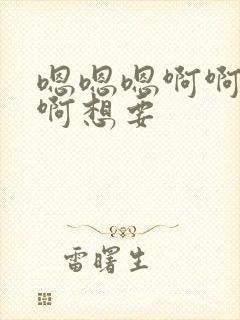 嗯嗯嗯啊啊
啊想要
雷曙生